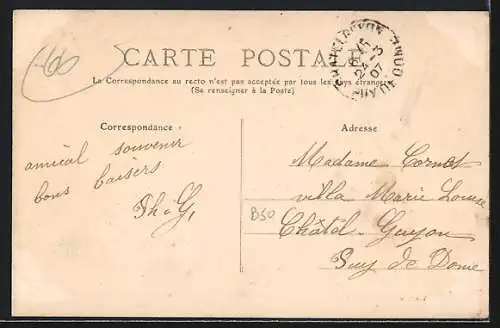 CARTE POSTALE
La Correspondance au recto n'est pas acceptée par tous les pays étrangers
(Se renseigner à la Poste)
Correspondance
Adresse
amical souvenir
bons baisers
Ph. G,
Madame Cornet
villa Marie Louise
Châtel-Guyon
Puy de Dome
B50
CHATELGUYON
24 -3
07
PUY DE DOME